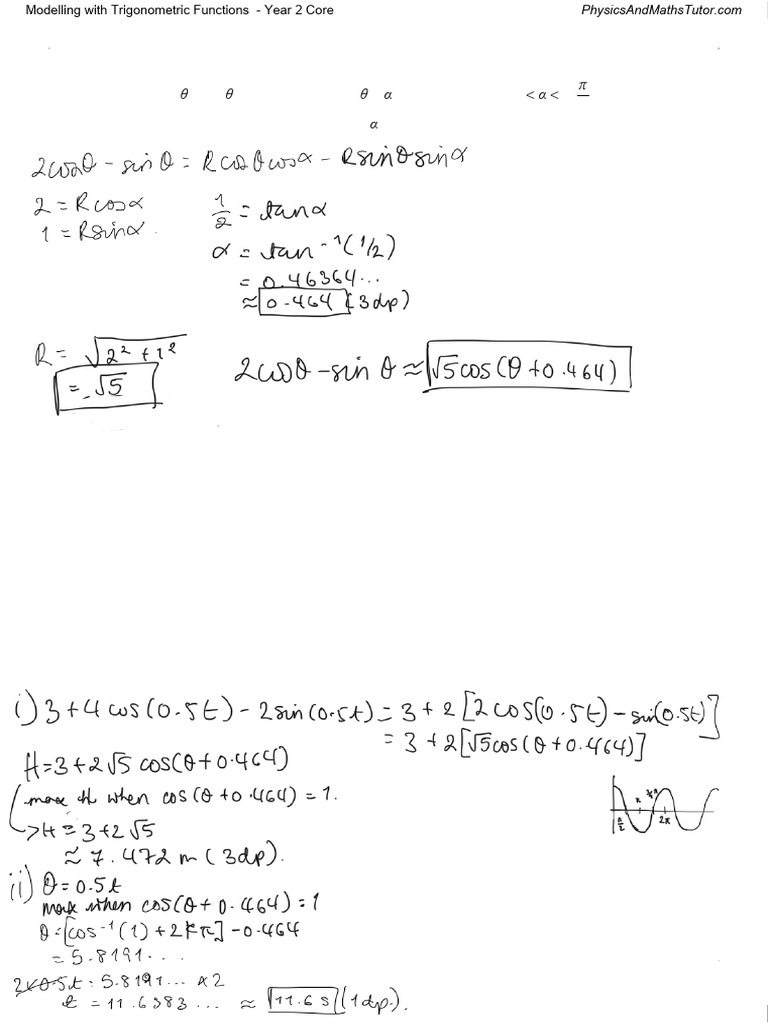 Modelling with Trigonometric Functions - Year 2 Core PhysicsAndMathsTutor.com
θ θ θ α < α < π
α
2cosθ - sinθ = Rcosθcosα - Rsinθsinα
2 = Rcosα 1/2 = tanα
1 = Rsinα.
α = tan⁻¹(1/2)
= 0.46364...
≈ 0.464 (3dp)
R = √2² + 1²
= √5
2cosθ - sinθ ≈ √5cos(θ + 0.464)
i) 3 + 4cos(0.5t) - 2sin(0.5t) = 3 + 2[2cos(0.5t) - sin(0.5t)]
= 3 + 2[√5cos(θ + 0.464)]
H = 3 + 2√5 cos(θ + 0.464)
max H when cos(θ + 0.464) = 1.
-> H = 3 + 2√5
≈ 7.472 m (3dp).
π/2 π 2π
ii) θ = 0.5t
max when cos(θ + 0.464) = 1
θ = [cos⁻¹(1) + 2kπ] - 0.464
= 5.8191...
2×0.5t = 5.8191... ×2
t = 11.6383... ≈ 11.6 s (1dp).